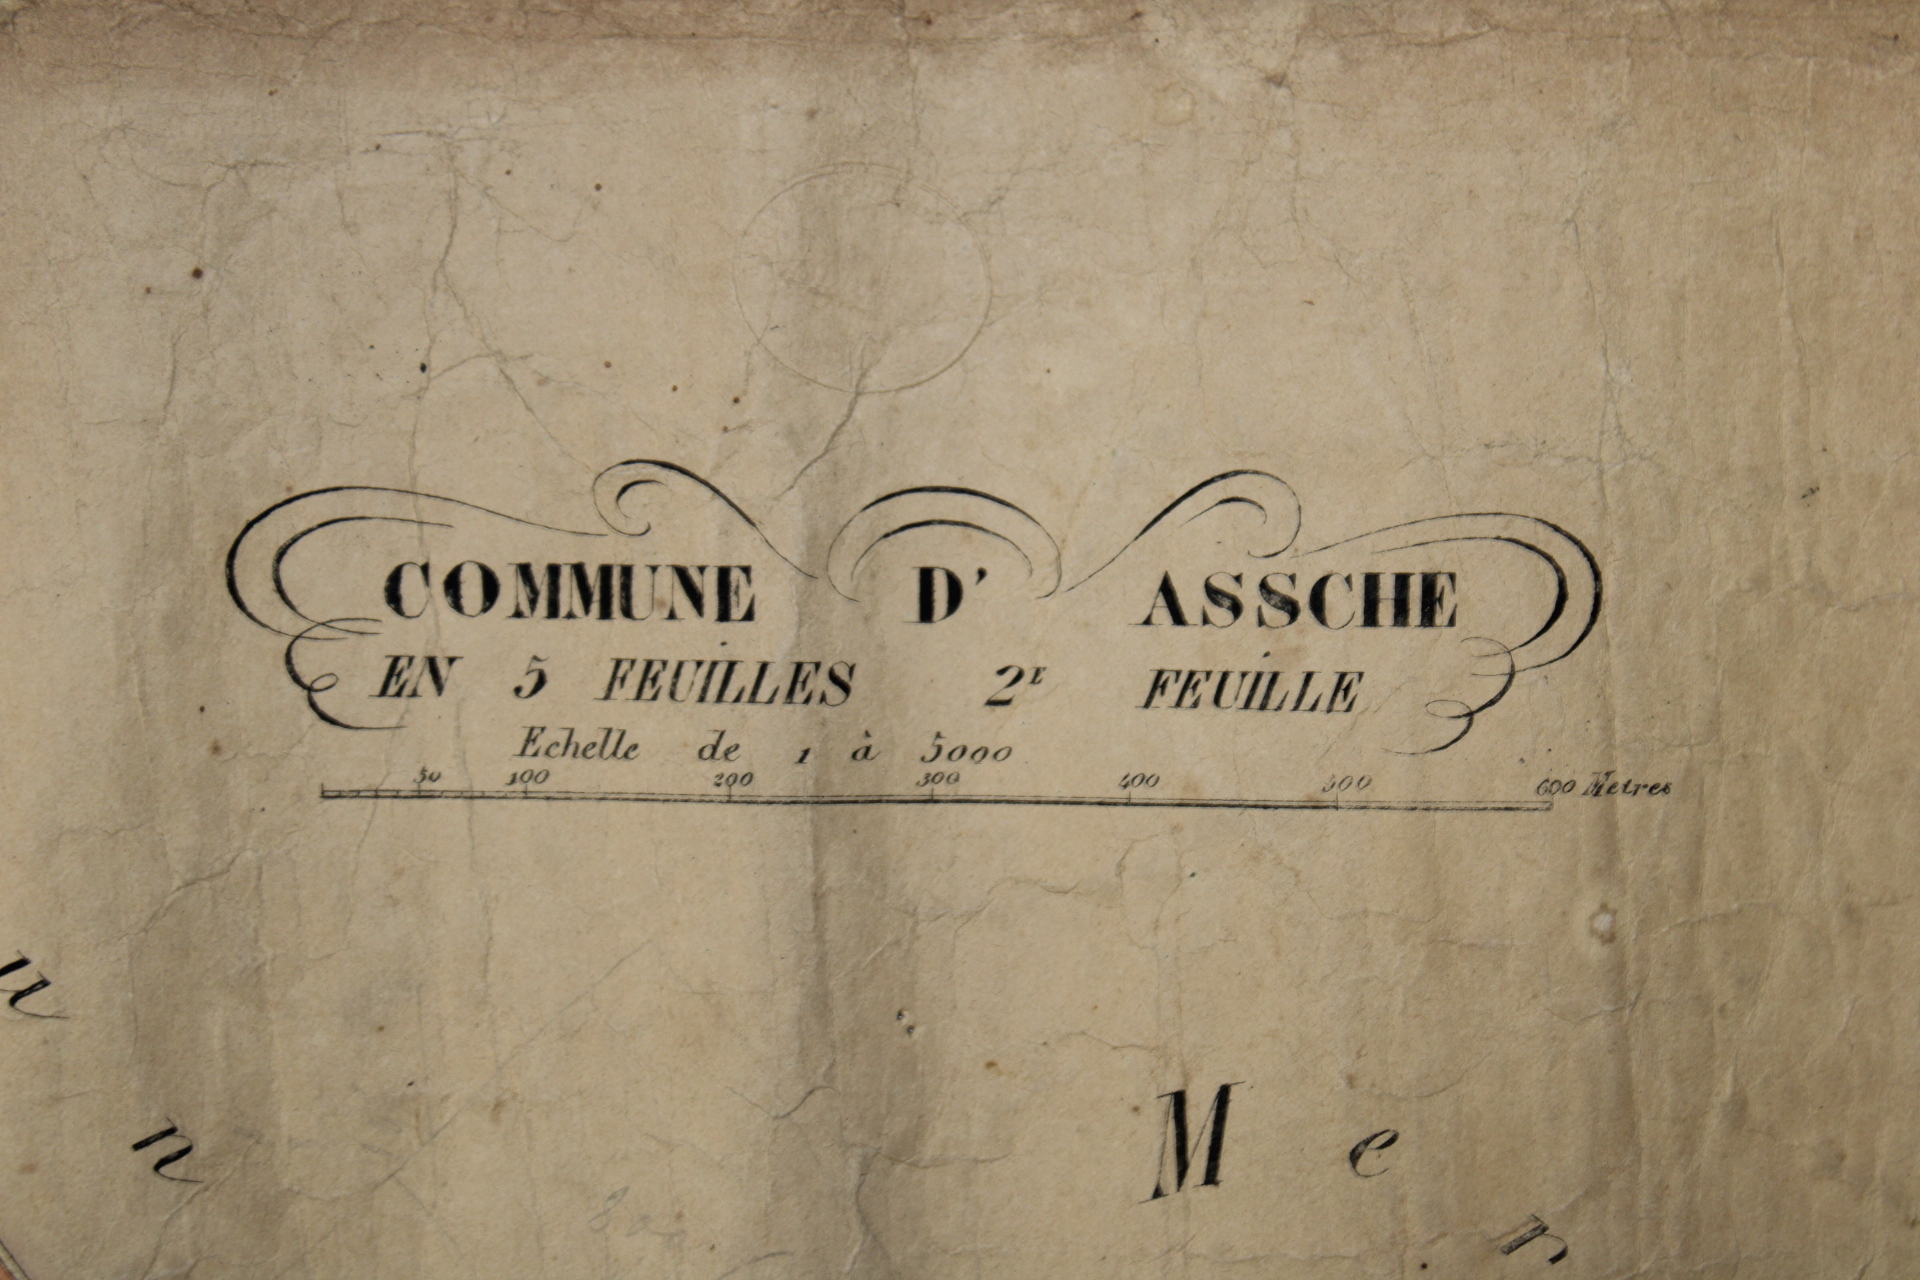 COMMUNE D' ASSCHE
EN 5 FEUILLES 2E FEUILLE
Echelle de 1 à 5000
50 100 200 300 400 500 600 Metres
u
n
M e r